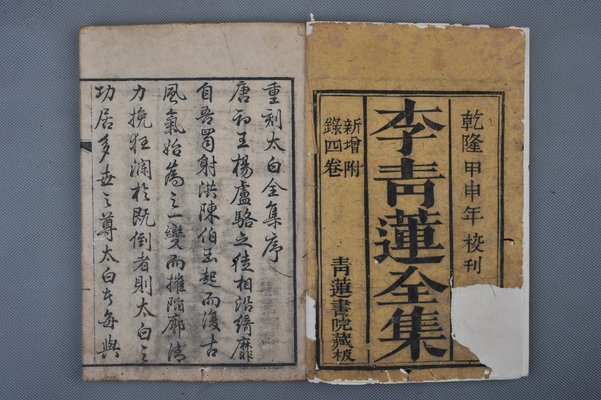 乾隆甲申年校刊
李青蓮全集
新增附
錄四卷
青蓮書院藏板
重刻太白全集序
唐初王楊盧駱之徒相沿綺靡
自吾蜀射洪陳伯玉起而復古
風氣始為之一變而摧陷廓清
力挽狂瀾於既倒者則太白之
功居多世之尊太白者每與